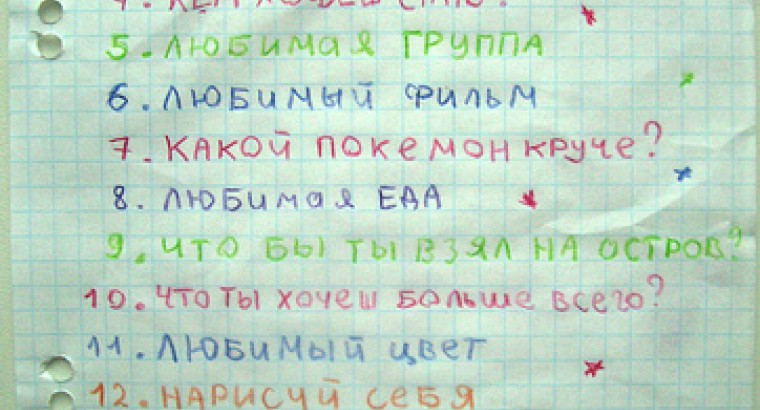 5. ЛЮБИМАЯ ГРУППА
6. ЛЮБИМЫЙ ФИЛЬМ
7. КАКОЙ ПОКЕМОН КРУЧЕ?
8. ЛЮБИМАЯ ЕДА
9. ЧТО БЫ ТЫ ВЗЯЛ НА ОСТРОВ?
10. ЧТО ТЫ ХОЧЕШ БОЛЬШЕ ВСЕГО?
11. ЛЮБИМЫЙ ЦВЕТ
12. НАРИСУЙ СЕБЯ